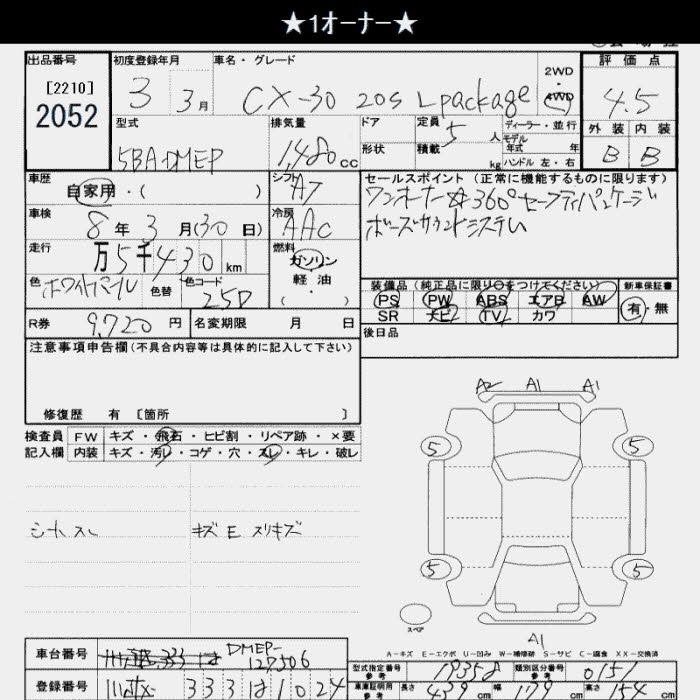 ★1オーナー★
出品番号 初度登録年月 車名・グレード 2WD 4WD 評価点
[2210]
2052
3 3月 CX-30 20S Lpackage 4.5
型式 排気量 ドア 定員 5人 ディーラー・並行 外装 内装
5BA-DMEP 1,480cc 形状 積載 kg モデル年式 年 ハンドル 左・右 B B
車歴 シフト セールスポイント (正常に機能するものに限ります)
自家用・( ) A7 ワンオーナー☆360°セーフティパッケージ
車検 冷房 ボーズサウンドシステム
8年3月(30日) AAC
走行 燃料
万5千430km ガソリン
色 ホワイトパール 色替 色コード 25D 軽油
・( )
装備品 (純正品に限り○をつけてください) 新車保証書
PS PW ABS エアB AW 有・無
SR ナビ TV カワ
R券 9,720円 名変期限 月 日 後日品
注意事項申告欄(不具合内容等は具体的に記入して下さい)
修復歴 有 [箇所 ]
検査員 FW キズ・飛石・ヒビ割・リペア跡・×要
記入欄 内装 キズ・汚レ・コゲ・穴・スレ・キレ・破レ
シートスレ キズ E スリキズ
A2 A1 A1
5 5
5 5
スペア
A1
A-キズ E-エクボ U-凹み W-補修跡 S-サビ C-腐食 XX-交換済
車台番号 DMEP-
127506
登録番号 333 は 1024
型式指定番号 参考 19358 類別区分番号 参考 0151
車庫証明用 参考 長さ 439cm 幅 179 高さ 154cm